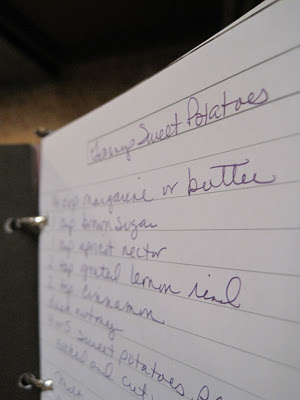 Sweet Potatoes
cup Margarine or butter
cup brown sugar
cup apricot nectar
2 tsp grated lemon rind
2 tsp cinnamon
dash nutmeg
4-5 sweet potatoes,
baked and cut